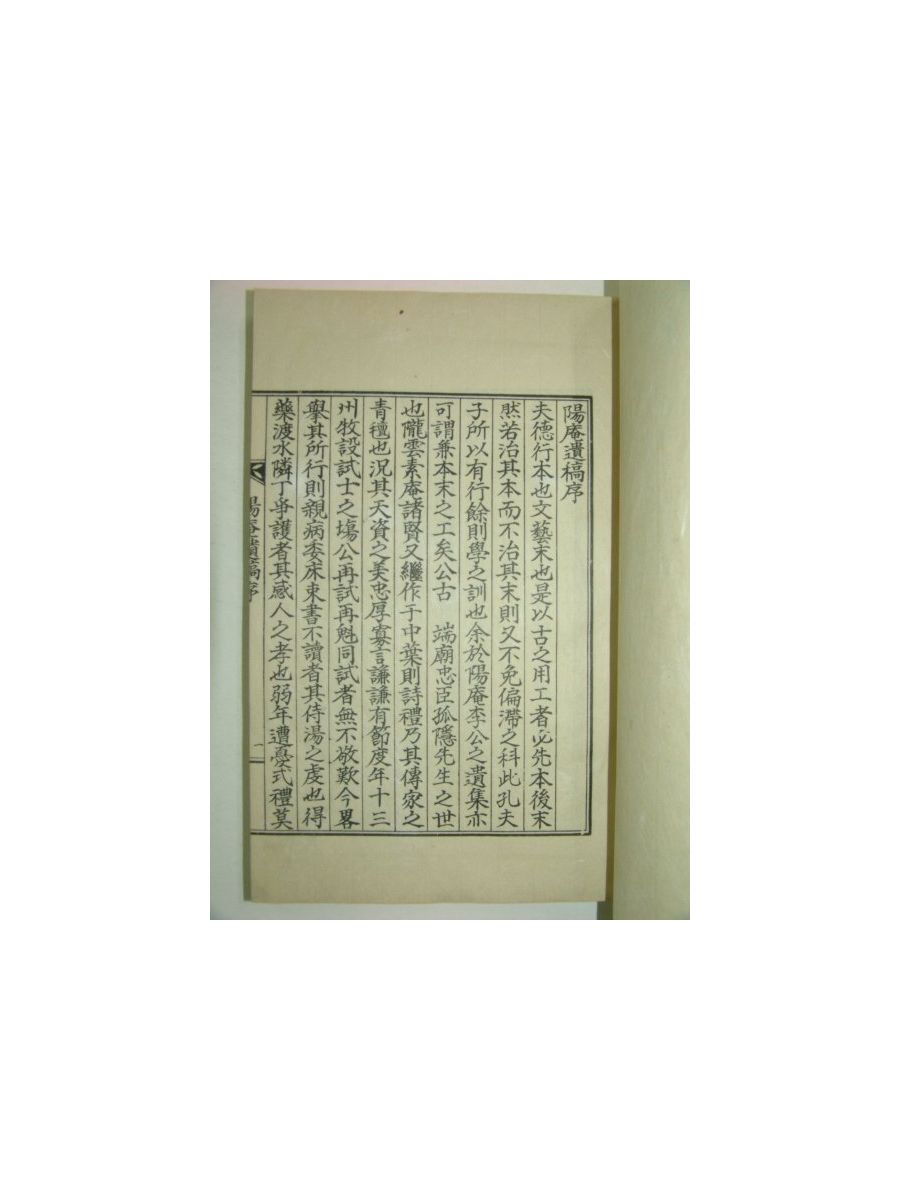 陽庵遺稿序
夫德行本也文藝末也是以古之用工者必先本後末
然若治其本而不治其末則又不免偏滯之科此孔夫
子所以有行餘則學之訓也余於陽庵李公之遺集亦
可謂兼本末之工矣公古　端廟忠臣孤隱先生之世
也隴雲素庵諸賢又繼作于中葉則詩禮乃其傳家之
青氊也況其天資之美忠厚寡言謙謙有節度年十三
州牧設試士之場公再試再魁同試者無不欽歎今畧
擧其所行則親病委床束書不讀者其侍湯之虔也得
藥渡水隣丁爭護者其感人之孝也弱年遭憂式禮莫
陽庵遺稿序
一